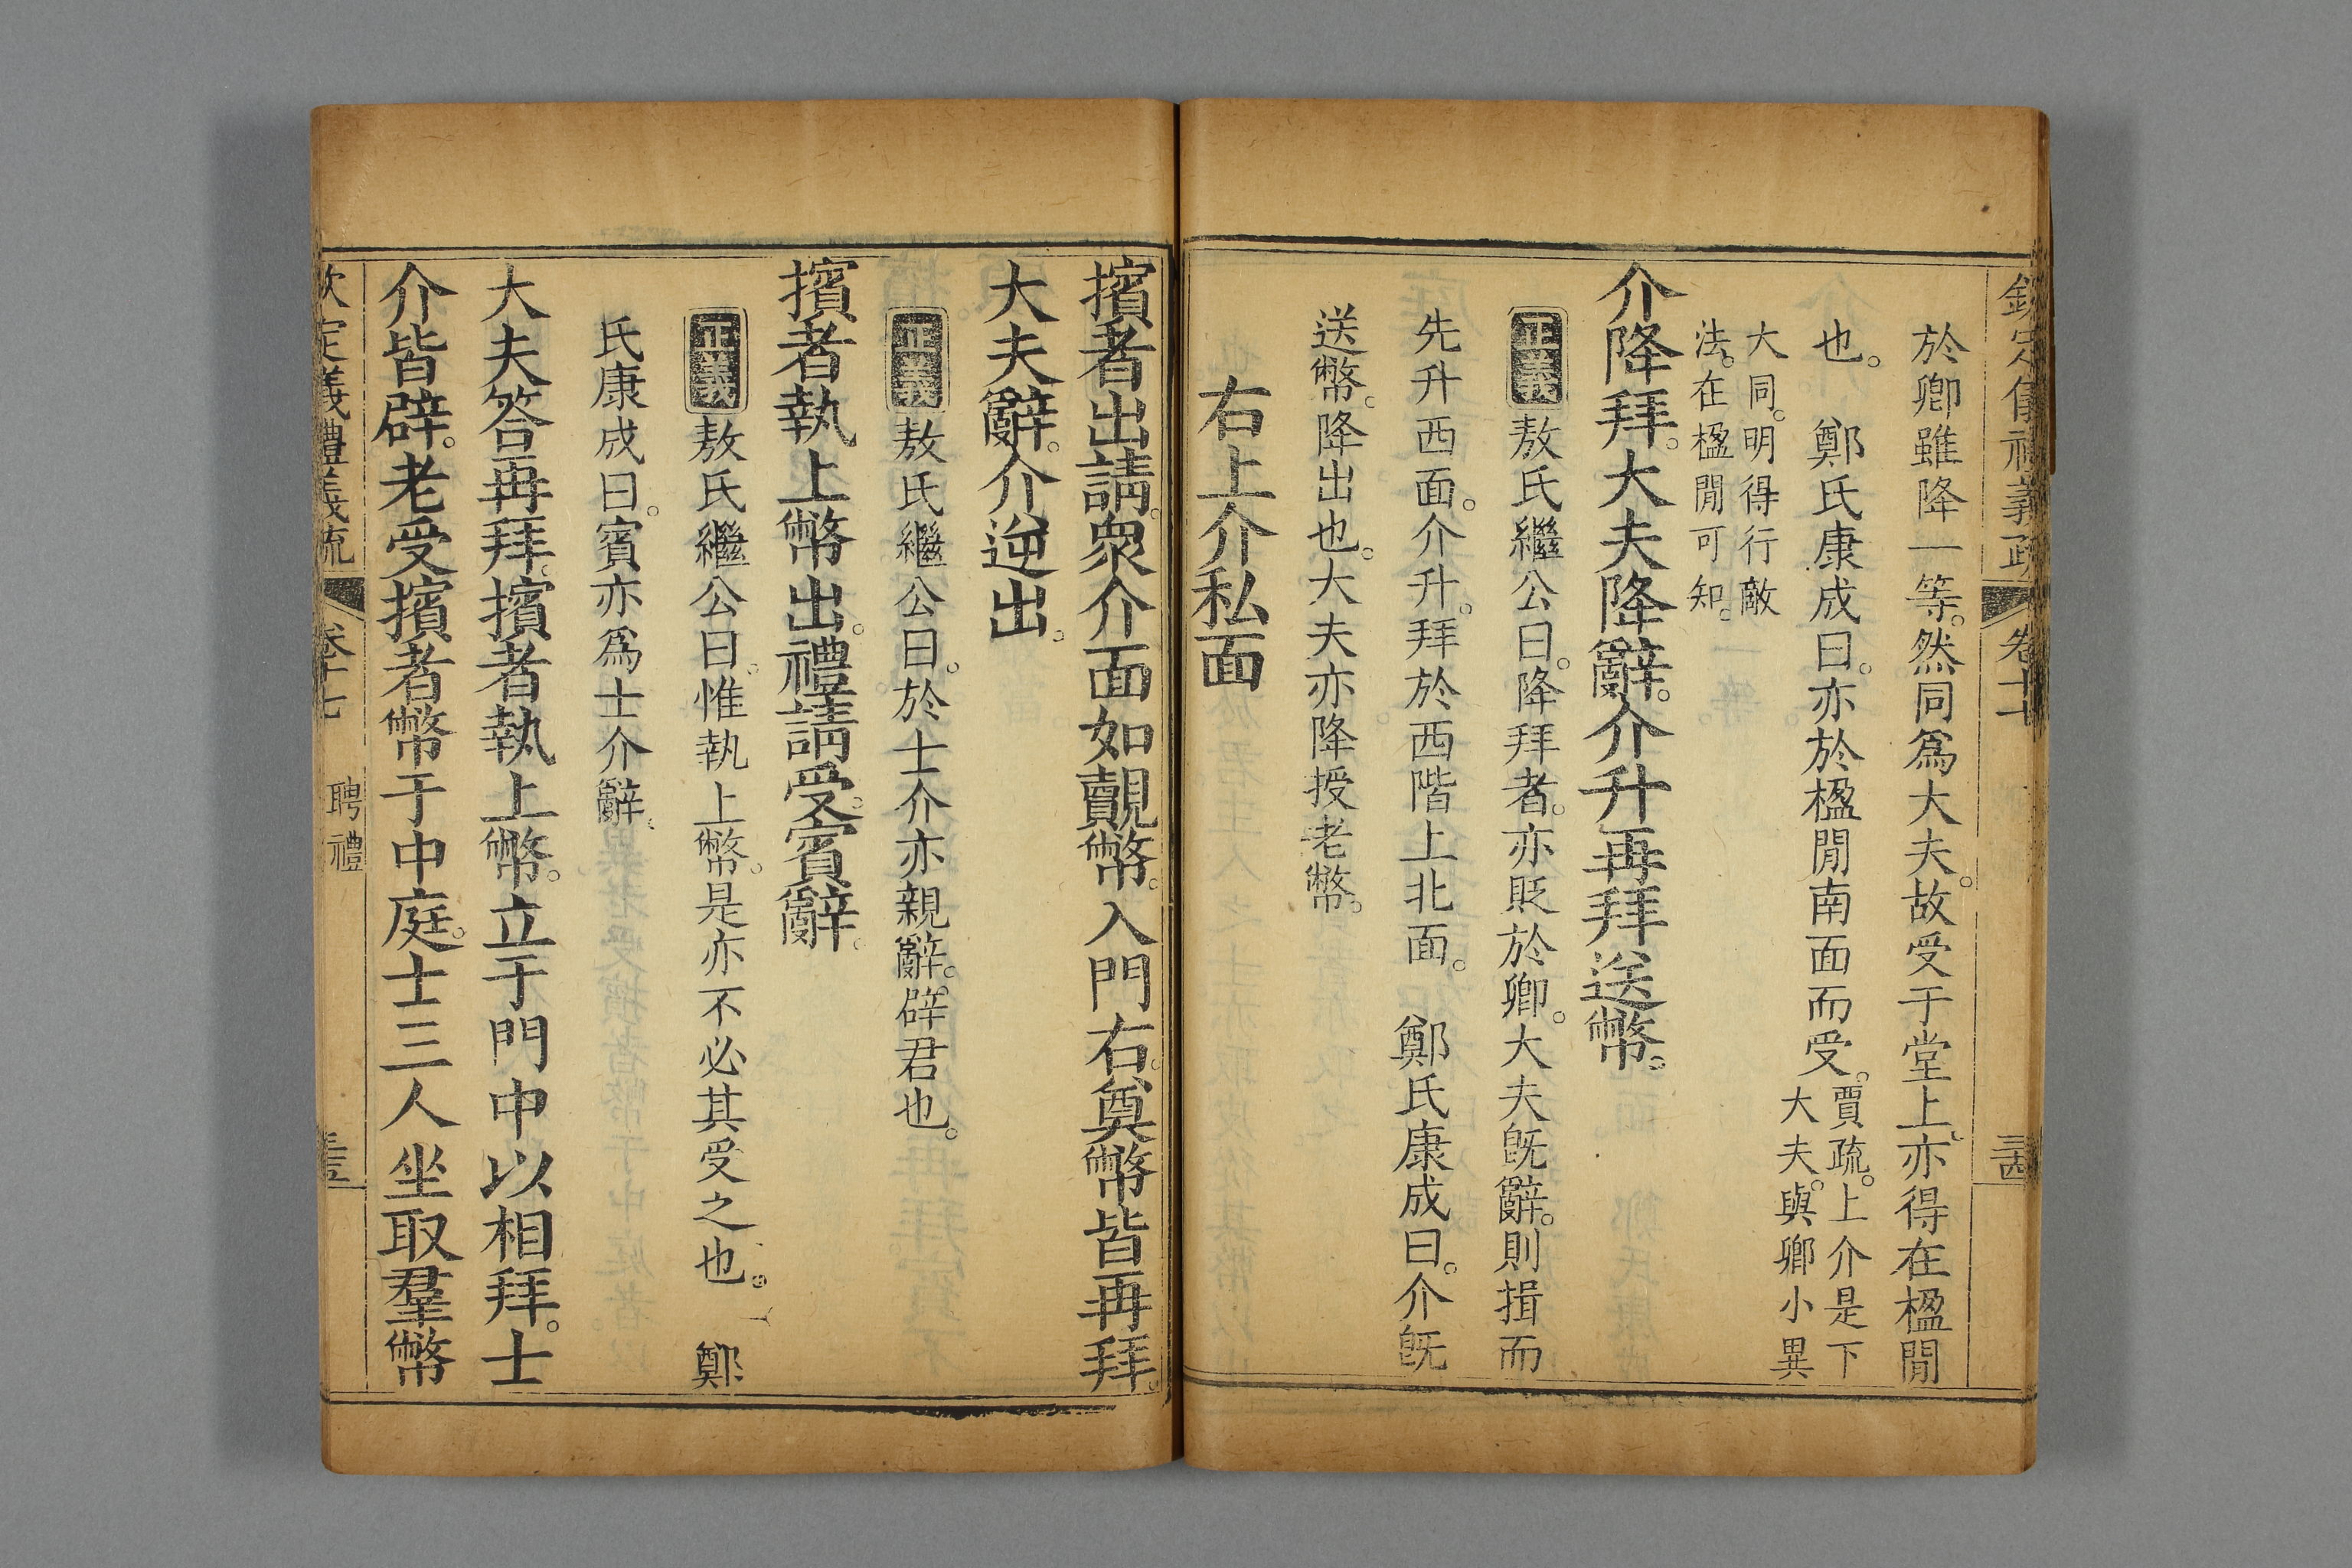 欽定儀禮義疏 卷十七 三四
於卿雖降一等。然同爲大夫。故受于堂上。亦得在楹閒
也。 鄭氏康成曰。亦於楹閒南面而受。賈疏。上介是下
大夫。與卿小異
大同。明得行敵
法。在楹閒可知。
介降拜。大夫降辭。介升再拜送幣。
正義 敖氏繼公曰。降拜者。亦貶於卿。大夫旣辭。則揖而
先升西面。介升。拜於西階上北面。 鄭氏康成曰。介旣
送幣。降出也。大夫亦降授老幣。
右上介私面
擯者出請。衆介面如覿幣。入門右。奠幣皆再拜。
大夫辭。介逆出。
正義 敖氏繼公曰。於士介亦親辭。辟君也。
擯者執上幣出。禮請受。賓辭。
正義 敖氏繼公曰。惟執上幣。是亦不必其受之也。 鄭
氏康成曰。賓亦爲士介辭。
大夫答再拜。擯者執上幣。立于門中以相拜。士
介皆辟。老受擯者幣于中庭。士三人坐取羣幣
欽定儀禮義疏 卷十七 聘禮 三五